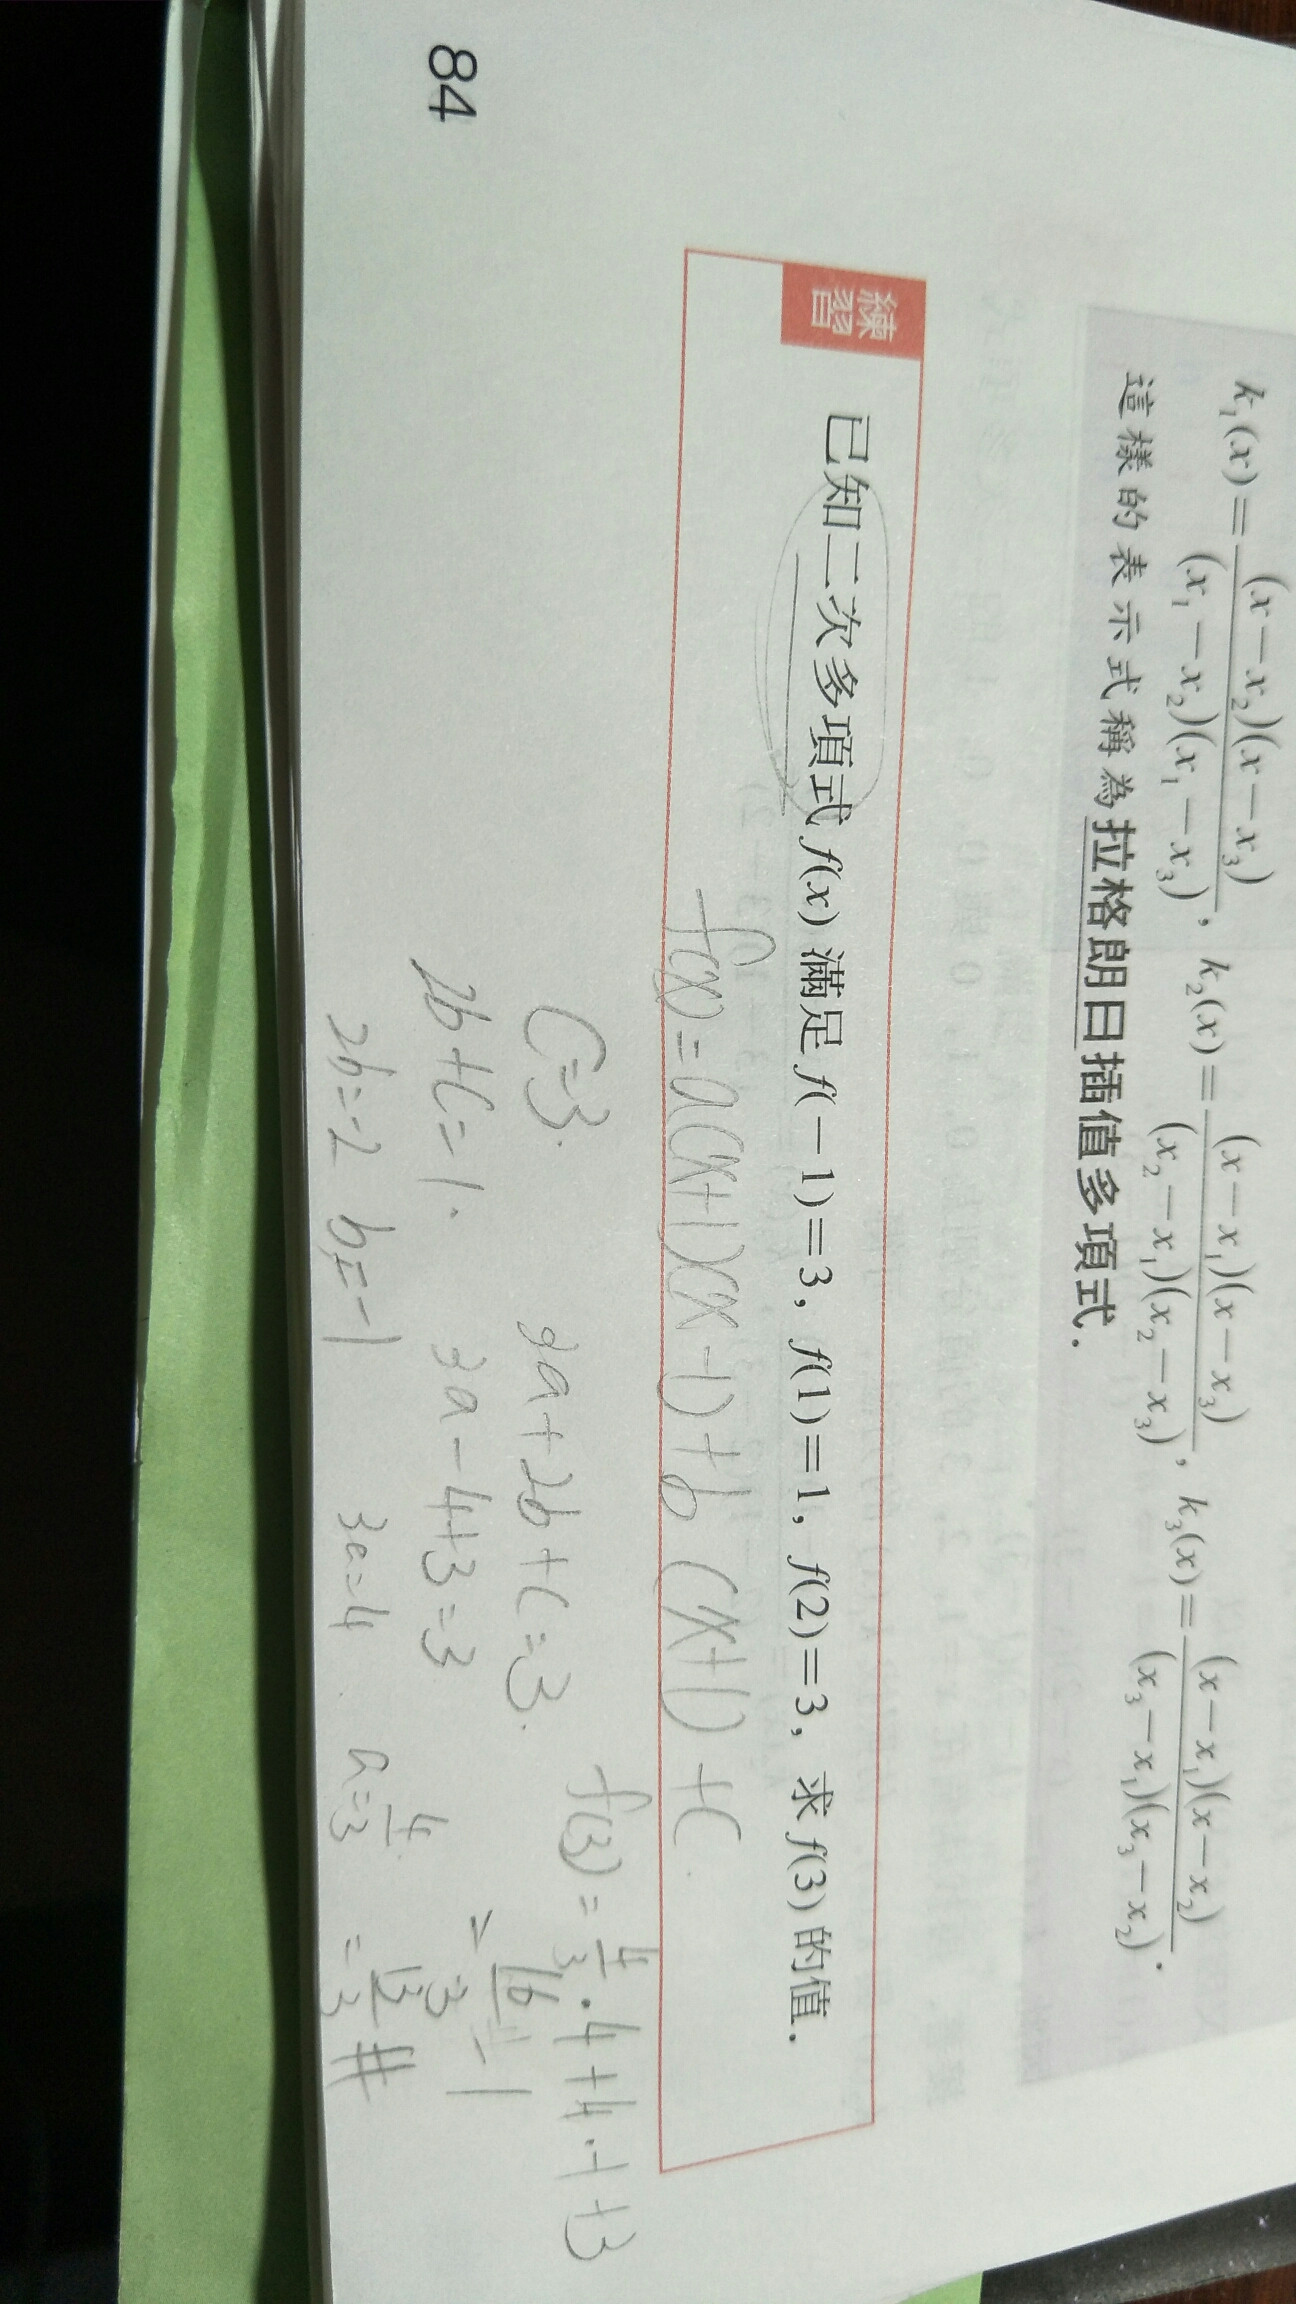 k₁(x)=(x−x₂)(x−x₃)/(x₁−x₂)(x₁−x₃), k₂(x)=(x−x₁)(x−x₃)/(x₂−x₁)(x₂−x₃), k₃(x)=(x−x₁)(x−x₂)/(x₃−x₁)(x₃−x₂).
這樣的表示式稱為拉格朗日插值多項式.
練習
已知二次多項式 f(x) 滿足 f(−1)=3, f(1)=1, f(2)=3, 求 f(3) 的值.
f(x)=a(x+1)(x-1)+b(x+1)+C
C=3.
2b+C=1.
2b=-2 b=-1
3a+3b+C=3.
3a-4+3=3
3a=4 a=4/3
f(3)=4/3·4+4·-1+3
=16/3-1
=13/3 #
84